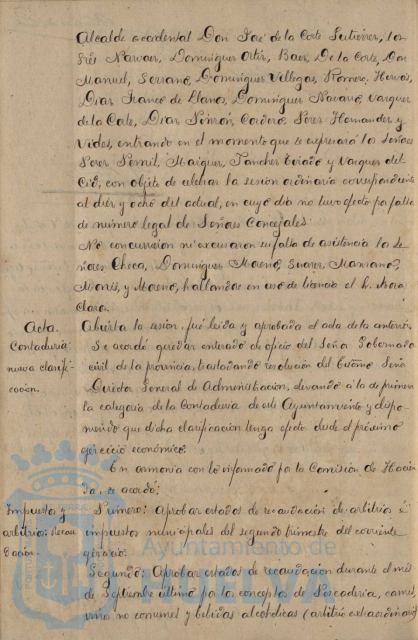 Alcalde accidental Don José de la Corte Gutierrez, los
Sres Narvaez, Dominguez Ortiz, Baez, De la Corte, Don
Manuel, Serrano, Dominguez Villegas, Romero, Hervas,
Diaz Franco de Llanos, Dominguez Navarro, Vazquez
de la Corte, Diaz, Cordero, Perez Hernandez y
Vides, entrando en el momento que se expresará los Señores
Perez, Sanchez y Vazquez del
Cid, con objeto de celebrar la sesion ordinaria correspondiente
al diez y ocho del actual, en cuyo dia no tuvo efecto por falta
de numero legal de Señores Concejales.
No concurrieron ni excusaron su falta de asistencia los Se-
ñores Checa, Dominguez Moreno, Suarez,
y Moreno, hallandose en uso de licencia el Sr. Mora
Claros.
Acta.
Abierta la sesion, fué leida y aprobada el acta de la anterior.
Contaduria:
nueva clasifi-
cacion.
Se acordó quedar enterado de oficio del Señor Gobernador
civil de la provincia, trasladando resolucion del Iltmo Señor
Director General de Administracion, elevando á la de primera
la categoria de la Contaduria de este Ayuntamiento y dispo-
niendo que dicha clasificacion tenga efecto desde el próximo
ejercicio económico.
En armonia con lo informado por la Comision de Hacien-
da, se acordó:
Impuestos y
arbitrios: Recau-
dacion.
Primero: Aprobar estados de recaudacion de arbitrios é
impuestos municipales del segundo trimestre del corriente
ejercicio.
Segundo: Aprobar estados de recaudacion durante el mes
de Septiembre último por los conceptos de Pescaderia, carnes,
vinos no comunes y bebidas alcoholicas (arbitrio extraordinario)
Ayuntamiento de
HUELVA